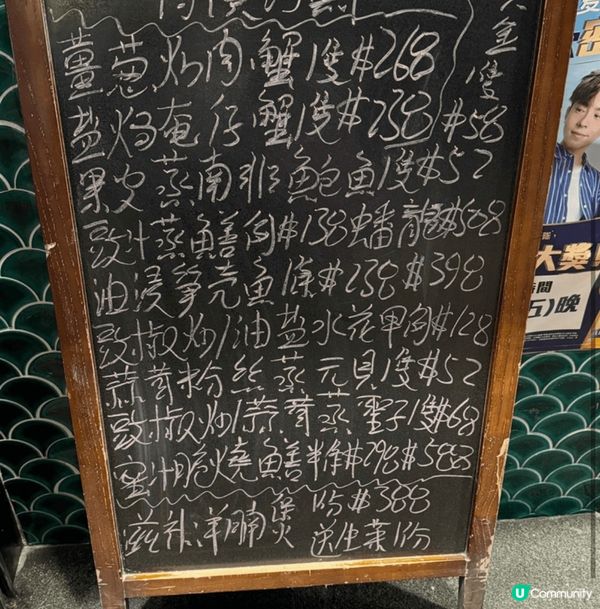 薑葱炒肉蟹1隻#268
盐焗奄仔蟹1隻#238
#58
果皮蒸南非鮑魚1隻#52
豉汁蒸鱔例#138蟠龍#508
油浸筍壳魚1條#238#398
豉椒炒/油盐水花甲例#128
蒜茸粉丝蒸元貝1隻#52
豉椒炒/蒜茸蒸聖子1隻#68
蜜汁脆燒鱔半條#298#588
滋补洋腩煲1份#388
送生菜1份
全隻
大獎
間
五)晚
U Community